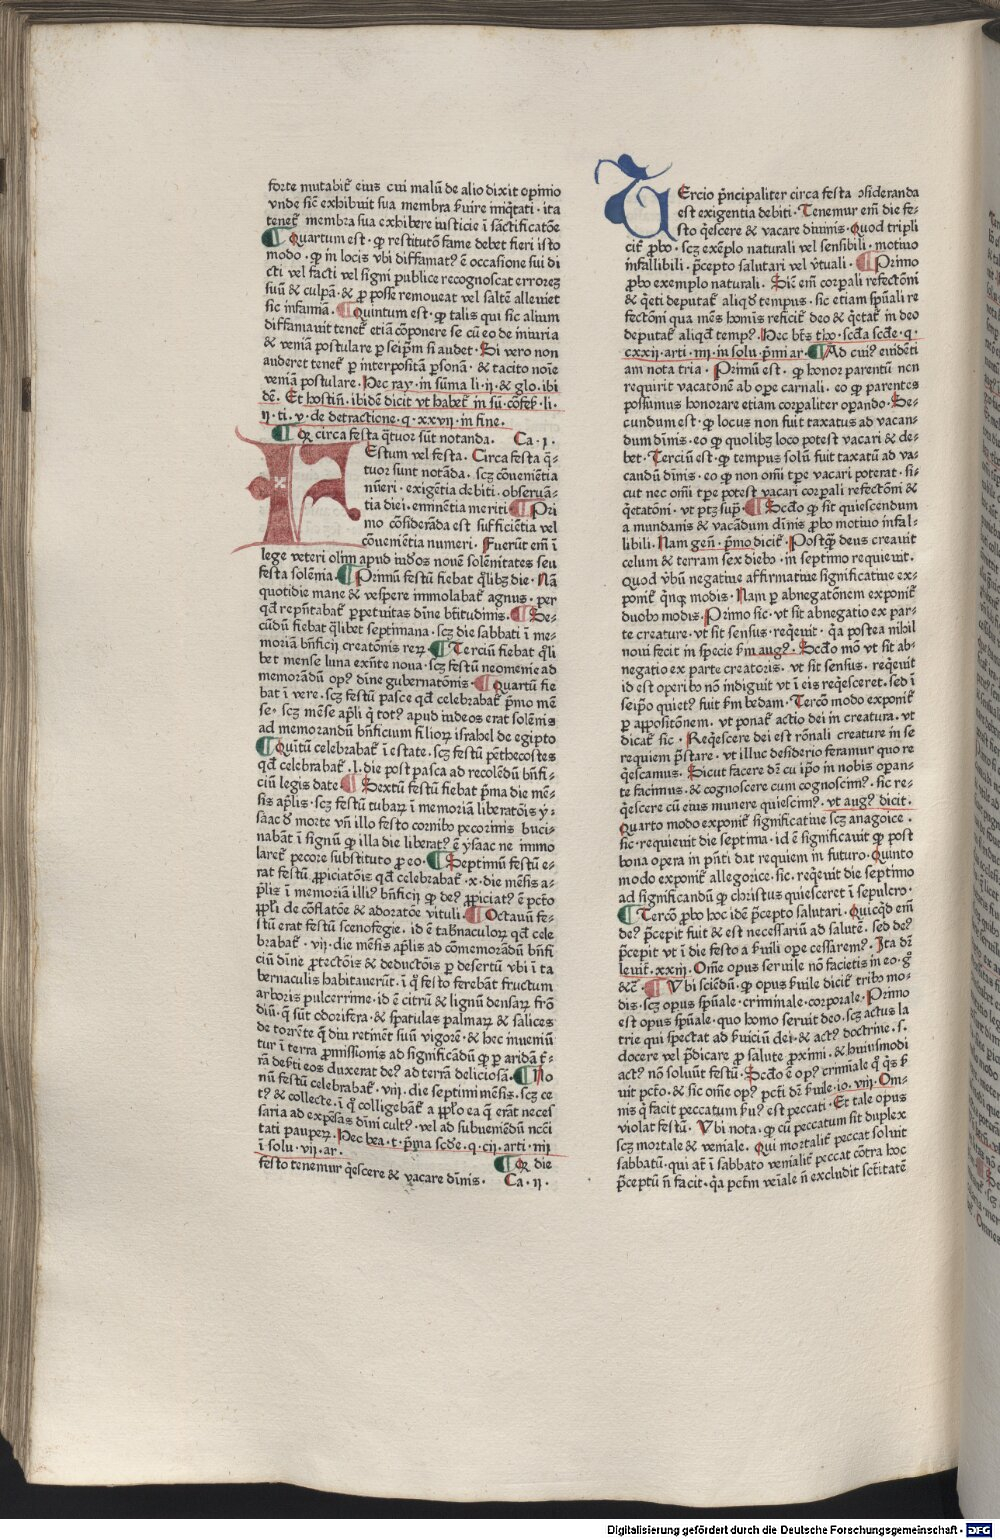 forte mutabit͛ eius cui malū de alio dixit opīnio
vnde sic̄ exhibuit sua membra ẜuire iniq̇tati · ita
tenet͛ membra sua exhibere iusticie ī sāctificatōe
¶ Quartum est · ꝙ restitutō fame debet fieri isto
modo · ꝙ in locis vbi diffamatꝰ ē occasione sui di
cti vel facti vel signi publice recognoscat errorez
suū & culpā · & ꝓ posse remoueat vel saltē alleuiet
sic infamiā · ¶ Quintum est · ꝙ talis qui sic alium
diffamauit tenet͛ etiā cōponere se cū eo de iniuria
& veniā postulare ꝑ seipm̄ si audet · Si vero non
auderet tenet͛ ꝑ interpositā ꝑsonā · & tacito noīe
veniā postulare · Hec ray · in sūma li · ii · & glo · ibi
dē · Et hostiñ · ibidē dicit vt habet͛ in sū · cōfeẜ · li ·
ii · ti · v · de detractione · q · xxvii · in fine ·
¶ Qꝛ circa festa q̄tuor sūt notanda · Ca · i ·
FEstum vel festa · Circa festa q̄-
tuor sunt notāda · scꝫ cōuenīētia
nūeri · exigētia debiti · obseruā-
tia diei · eminētia meriti ¶ Pri
mo cōsiderāda est sufficiētia vel
cōueniētia numeri · Fuerūt em̄ ī
lege veteri olim apud iudeos nouē solēnitates seu
festa solēnia · ¶ Primū festū fiebat q̄libꝫ die · Nā
quotidie mane & vespere immolabat͛ agnus · per
qd̄ rep̄ntabat͛ ꝑpetuitas diīne bt̄itudinis · ¶ Se-
cūdū fiebat q̄libet septimana · scꝫ die sabbati ī me-
moriā bn̄ficij creatōnis reꝝ · ¶ Terciū fiebat q̄li
bet mense luna exn̄te noua · scꝫ festū neomenie ad
memorādū opꝰ diīne gubernatōnis · ¶ Quartū fie
bat ī vere · scꝫ festū pasce qd̄ celebrabat͛ p̄mo mē
se · scꝫ mēse apl̄i q̇ totꝰ apud iudeos erat solēnis
ad memorandū bn̄ficium filioꝝ israhel de egipto
¶ Quītū celebrabat͛ ī estate · scꝫ festū pēthecostes
qd̄ celebrabat͛ · l · die post pasca ad recolēdū bn̄fi-
ciū legis date ¶ Sextū festū fiebat p̄ma die mē-
sis apl̄is · scꝫ festū tubaꝝ ī memoriā liberatōis y-
saac d̕ morte vn̄ illo festo cornibꝰ pecorinis buci-
nabāt ī signū ꝙ illa die liberatꝰ ē ysaac ne immo
laret͛ pecore substituto ꝓ eo · ¶ Septimū festū e-
rat festū ꝓpiciatōis qd̄ celebrabat͛ · x · die mēsis a-
pl̄is ī memoriā illiꝰ bn̄ficij ꝙ deꝰ ꝓpiciatꝰ ē pctō
ppl̄i de cōflatōe & adoratōe vituli · ¶ Octauū fe-
stū erat festū scenofegie · id ē tab̄naculoꝝ qd̄ cele
brabat͛ · vii · die mēsis apl̄is ad cōmemorādū bn̄fi
ciū diīne ꝓtectōis & deductōis ꝑ desertū vbi ī ta
bernaculis habitauerūt · ī q̇ festo ferebāt fructum
arboris pulcerrime · id ē citrū & lignū densaꝝ frō
diū · q̄ sūt odorifera · & spatulas palmaꝝ & salices
de torrēte q̄ diu retinēt suū vigorē · & hec inueniū
tur ī terra ꝓmissionis ad significādū ꝙ ꝑ aridā t̄r-
rā deẜti eos duxerat deꝰ ad terrā deliciosā · ¶ No
nū festū celebrabat͛ · viii · die septimi mēsis · scꝫ ce
tꝰ & collecte · ī q̇ colligebāt͛ a pp̄lo ea q̄ erāt neces
saria ad expēsas diīni cultꝰ · vel ad subueniēdū nc̄ci
tati pauperꝝ · Hec bea · t · p̄ma scd̄e · q · cii · arti · iiii
ī solu · vii · ar · ¶ Qꝛ die
festo tenemur q̇escere & vacare diīnis · Ca · ii ·
TErcio p̄ncipaliter circa festa ɔsideranda
est exigentia debiti · Tenemur em̄ die fe-
sto q̇escere & vacare diuinis · Quod tripli
cit͛ ꝓbo · scꝫ exēplo naturali vel sensibili · motiuo
infallibili · p̄cepto salutari vel v̄tuali · ¶ Primo
ꝓbo exemplo naturali · Sic̄ em̄ corꝑali refectōni
& q̇eti deputat͛ aliqd̄ tempus · sic etiam spūali re
fectōni qua mēs hoīnis reficit͛ deo & q̇etat͛ in deo
deputat͛ aliqd̄ tempꝰ · Hec bt̄s tho · scd̄a scd̄e · q ·
cxxii · arti · iiii · in solu · p̄mi ar · ¶ Ad cuiꝰ euidēti
am nota tria · Primū est · ꝙ honor parentū non
requirit vacatōnē ab oꝑe carnali · eo ꝙ parentes
possumus honorare etiam corꝑaliter oꝑando · Se-
cundum est · ꝙ locus non fuit taxatus ad vacan-
dum diīnis · eo ꝙ quolibꝫ loco potest vacari & de-
bet · Terciū est · ꝙ tempus solū fuit taxatū ad va-
candū diīnis · eo ꝙ non om̄i tꝑe vacari poterat · si-
cut nec om̄i tꝑe potest vacari corꝑali refectōni &
q̇etatōni · vt ptꝫ sup̄ · ¶ Scd̄o ꝙ sit quiescendum
a mundanis & vacādum diīnis ꝓbo motiuo infal-
libili · Nam geñ · p̄mo dicit͛ · Postq̄ deus creauit
celum & terram sex diebꝰ · in septimo requieuit ·
Quod v̄bū negatiue affirmatiue significatiue ex-
ponit͛ q̇nqꝫ modis · Nam ꝑ abnegatōnem exponit͛
duobꝰ modis · Primo sic · vt sit abnegatio ex par-
te creature · vt sit sensus · req̇euit · q̇a postea nihil
noui fecit in specie ẜm augꝰ · Scd̄o mō vt sit ab-
negatio ex parte creatoris · vt sit sensus · req̇euit
id est operibꝰ nō indiguit vt ī eis req̇esceret · sed ī
seipō quietꝰ fuit ẜm bedam · Tercō modo exponit͛
ꝑ appositōnem · vt ponat͛ actio dei in creatura · vt
dicat͛ sic · Req̇escere dei est rōnali creature in se
requiem p̄stare · vt illuc desiderio feramur quo re
q̇escamus · Sicut facere dr̄ cū ipō in nobis oꝑan-
te facimus · & cognoscere cum cognoscimꝰ · sic re-
q̇escere cū eius munere quiescimꝰ · vt augꝰ dicit ·
Quarto modo exponit͛ significatiue scꝫ anagoice ·
sic · requieuit die septima · id ē significauit ꝙ post
bona opera in p̄nti dat requiem in futuro · Quinto
modo exponit͛ allegorice · sic · req̇euit die septimo
ad significandū ꝙ christus quiesceret ī sepulcro ·
¶ Tercō ꝓbo hoc idē p̄cepto salutari · Quicq̇d em̄
deꝰ p̄cepit fuit & est necessariū ad salutē · sed deꝰ
p̄cepit vt ī die festo a ẜuili oꝑe cessaremꝰ · Ita dr̄
leuit͛ · xxiij · Om̄e opus seruile nō facietis in eo · gͦ
& cͨ · ¶ Vbi sciēdū · ꝙ opus ẜuile dicit͛ tribꝰ mo-
dis · scꝫ opus spūale · criminale · corporale · Primo
est opus spūale · quo homo seruit deo · scꝫ actus la
trie qui spectat ad ẜuiciū dei · & actꝰ doctrine · s ·
docere vel p̄dicare ꝓ salute ꝓximi · & huiusmodi
actꝰ nō soluūt festū · Scd̄o ē opꝰ criminale qͦ q̇s ẜ
uit pctō · & sic om̄e opꝰ pcti dr̄ ẜuile · io · viii · Om-
nis q̇ facit peccatum ẜuꝰ est peccati · Et tale opus
violat festū · Vbi nota · ꝙ cū peccatum sit duplex
scꝫ mortale & veniale · Qui mortalit͛ peccat soluit
sabbatū · qui at̄ ī sabbato venialit͛ peccat cōtra hoc
p̄ceptū n̄ facit · q̇a pctm̄ veīale n̄ excludit sctītatē
Digitalisierung gefördert durch die Deutsche Forschungsgemeinschaft - DFG